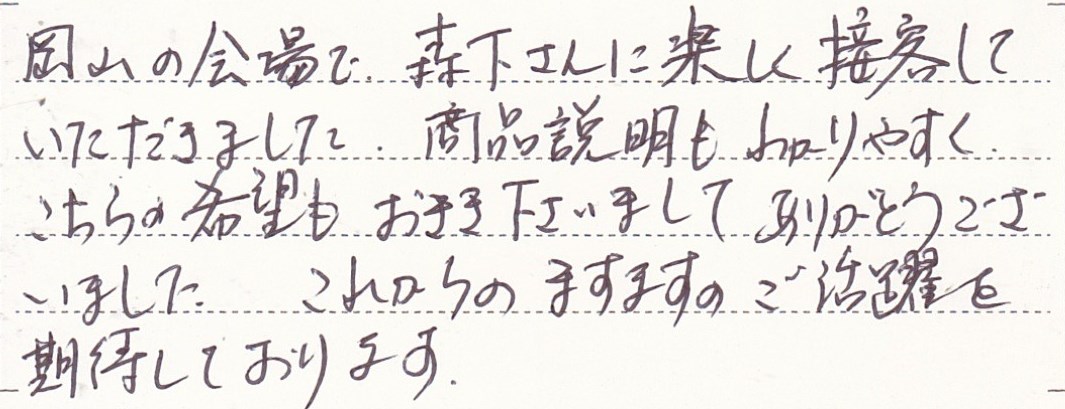 岡山の会場で、森下さんに楽しく接客して
いただきました。商品説明もわかりやすく、
こちらの希望もおきき下さいましてありがとうござ
いました。 これからのますますのご活躍を
期待しております。